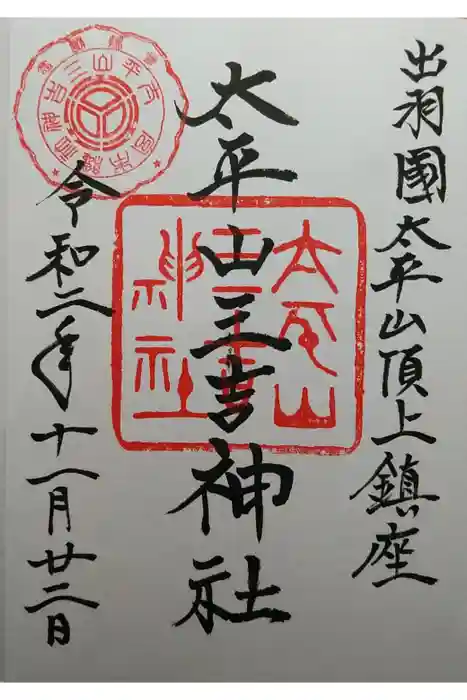 出羽國太平山頂上鎮座
太平山三吉神社
太平山
三吉
神社
令和二年十一月廿二日